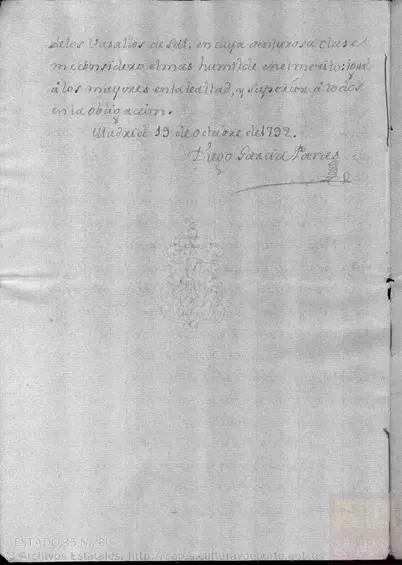 de los Vasallos de S.M. en cuya venturosa clase
me considero el mas humilde en el merito: igual
à los mayores en la lealtad, y superior à todos
en la obligacion.
Madrid 19 de octubre de 1792.
Diego Garcia Panes
ESTADO, 35, N.8
Archivos Estatales, http://pares.culturaydeporte.gob.es